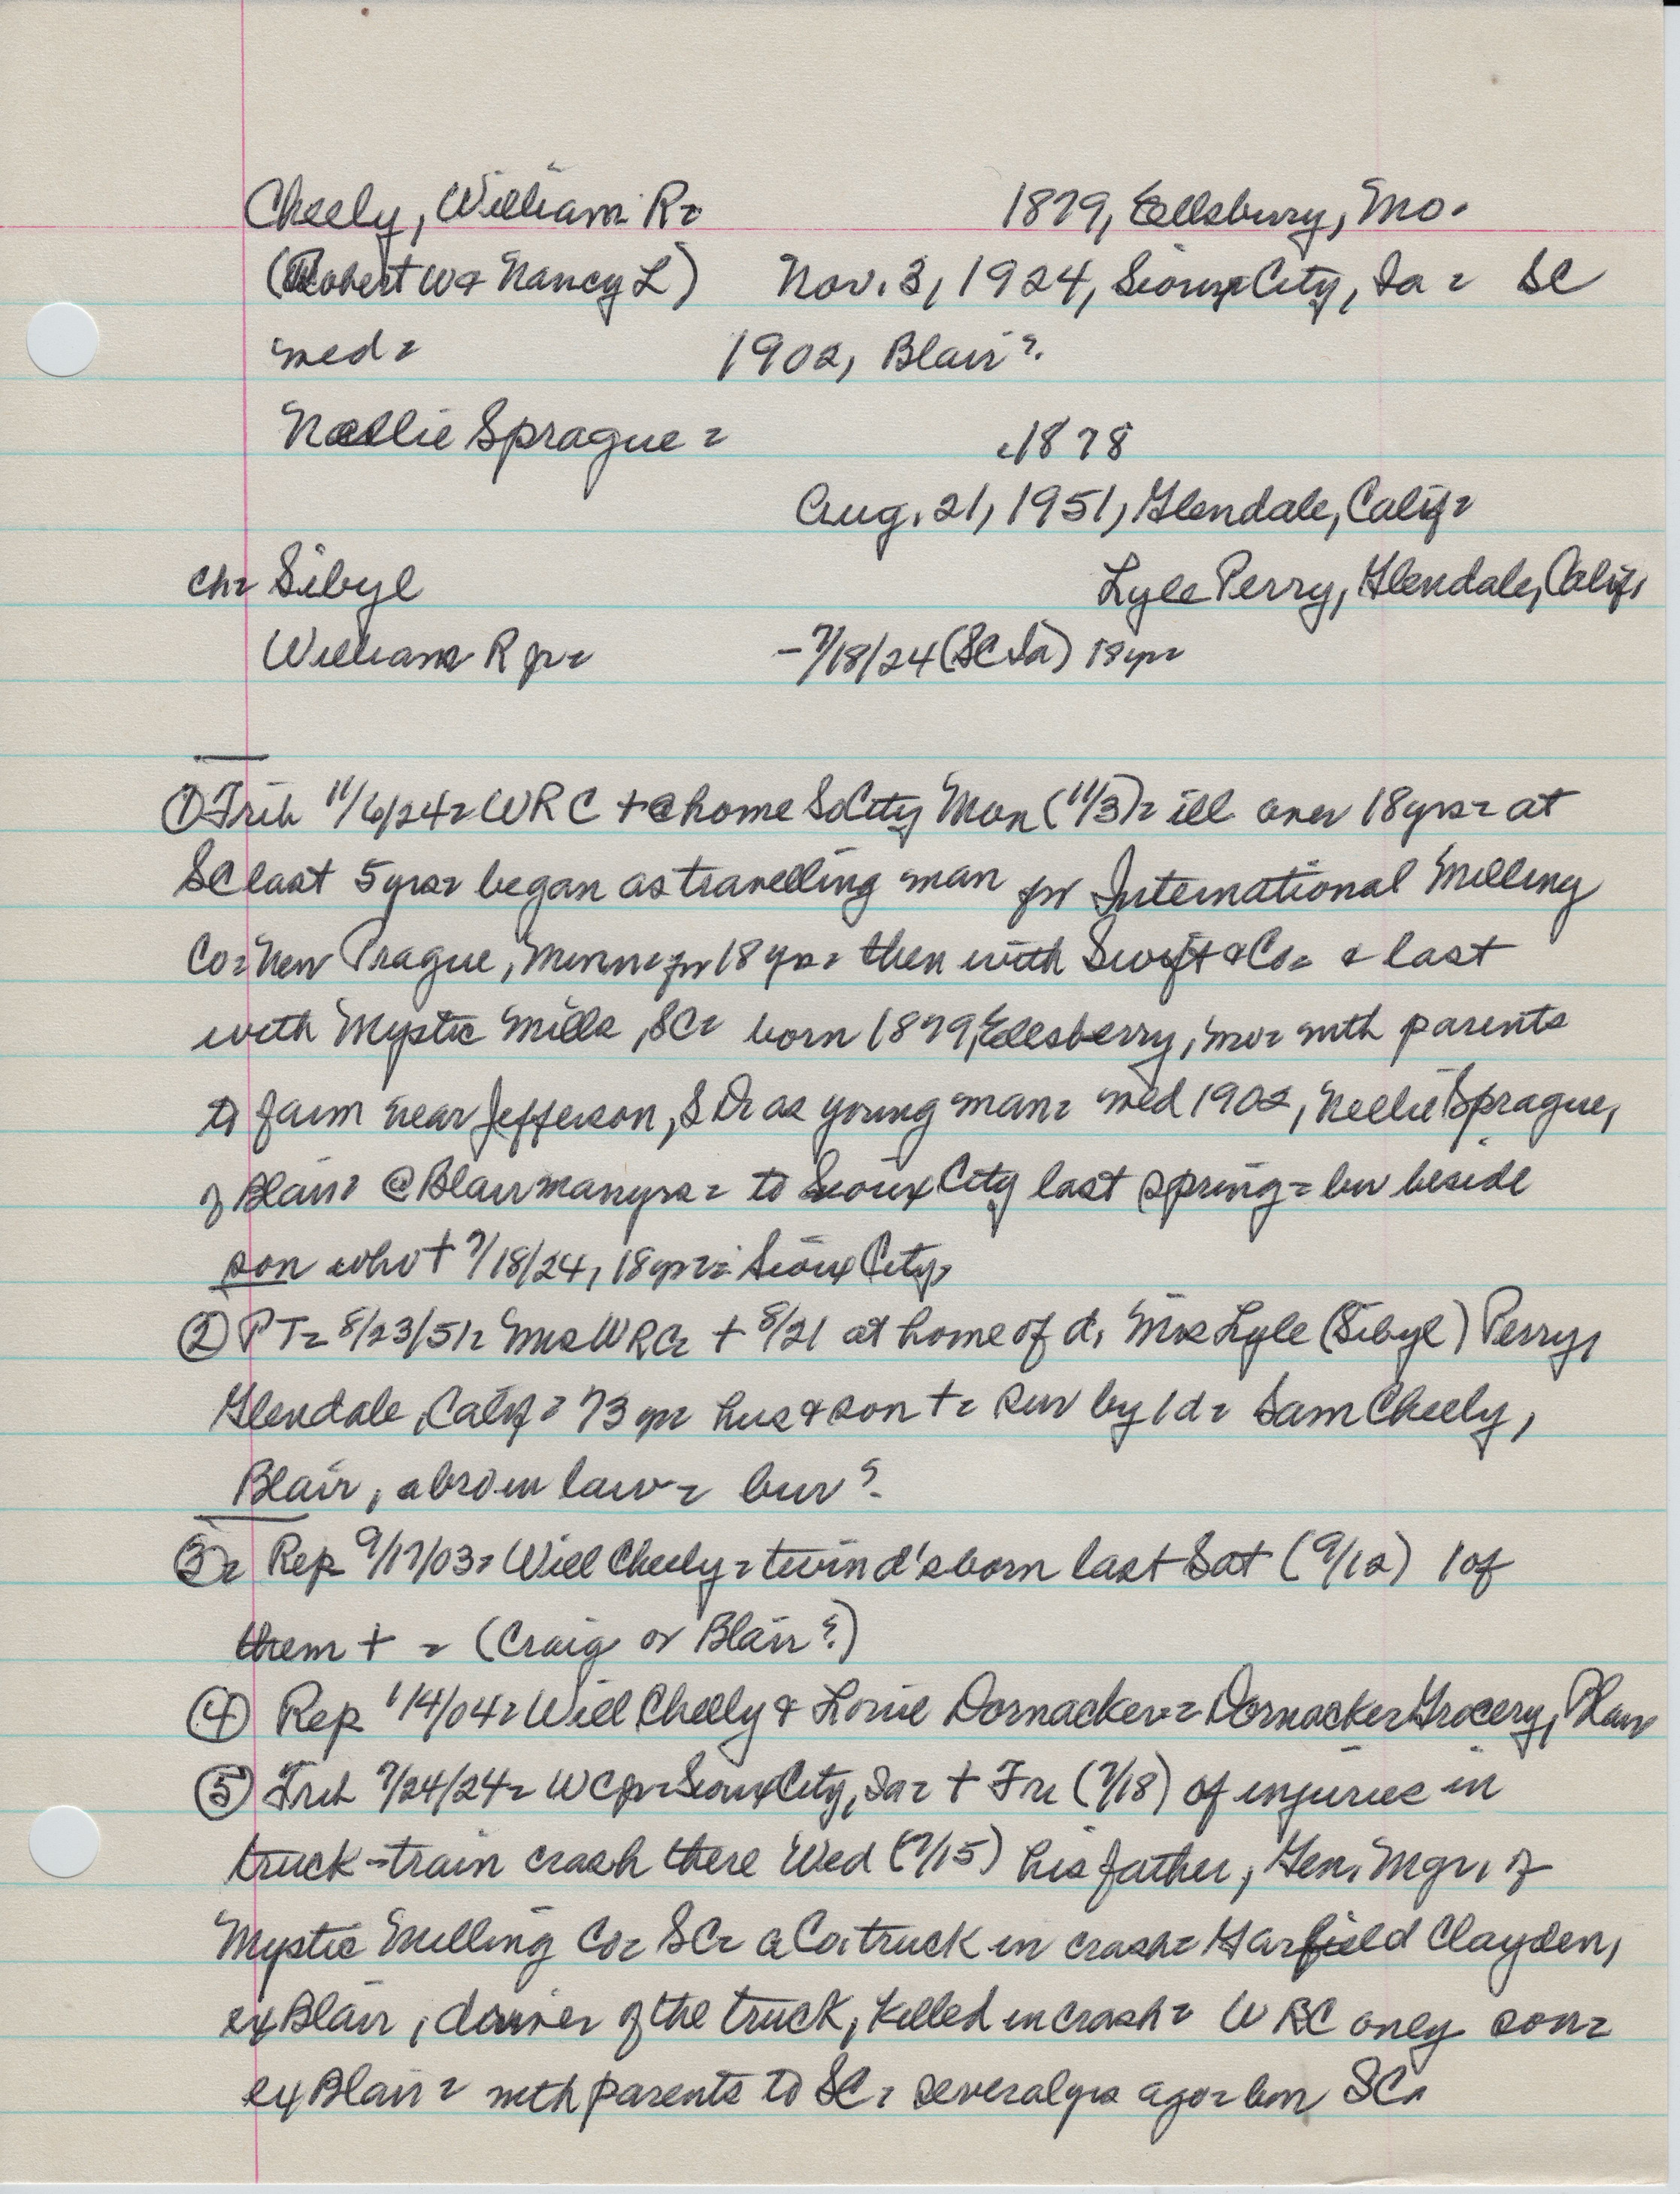 Cheely, William R= 1879, Eellsbury, Mo.
(Robert W & Nancy L) Nov. 3, 1924, Sioux City, Ia = SC
med = 1902, Blair?
Nellie Sprague = c1878
Aug. 21, 1951, Glendale, Calif=
ch= Sibyl Lyle Perry, Glendale, Calif,
William R jr= -7/18/24 (SC Ia) 18 yr=
① Trib 11/6/24= WRC + @ home S City Mon (11/3)= ill over 18 yrs= at
SC last 5 yrs= began as travelling man for International Milling
Co= New Prague, Minn= for 18 yrs= then with Swift & Co= & last
with Mystic Mills, SC= born 1879, Eellsberry, Mo= with parents
to farm near Jefferson, S D= as young man= med 1902, Nellie Sprague,
of Blair= @ Blair many rs= to Sioux City last spring= bur beside
son who + 7/18/24, 18 yr== Sioux City,
② PT= 8/23/51= Mrs WRC= + 8/21 at home of d, Mrs Lyle (Sibyl) Perry,
Glendale, Calif= 73 yr= hus & son += sur by 1 d= Sam Cheely,
Blair, a bro in law= bur?
③= Rep 9/17/03= Will Cheely= twin d's born last Sat (9/12) 1 of
them + = (Craig or Blair?)
④ Rep 1/14/04= Will Cheely & Louie Dornacker= Dornacker Grocery, Blair
⑤ Trib 7/24/24= WC jr= Sioux City, Ia= + Fri (7/18) of injuries in
truck-train crash there Wed (7/15) his father, Gen. Mgr. of
Mystic Milling Co= SC= a Co. truck in crash= Garfield Clayden,
ex Blair, driver of the truck, killed in crash= WRC only son=
ex Blair= with parents to SC= several yrs ago= bur SC.